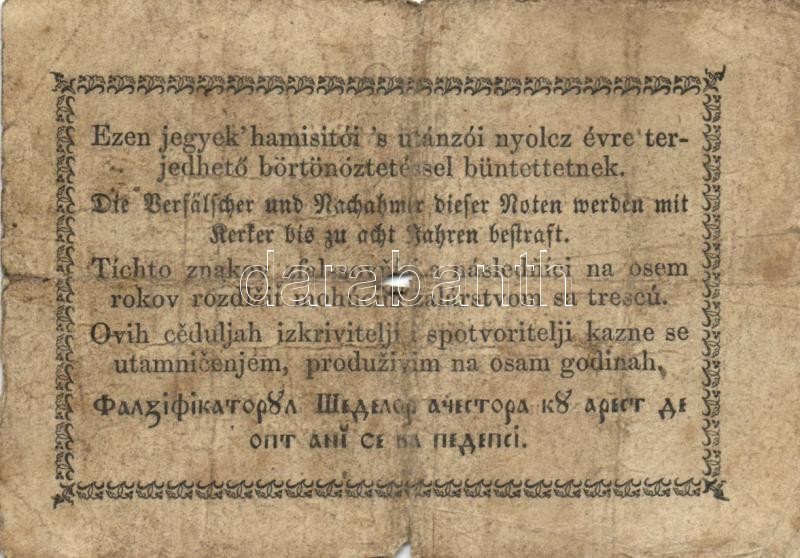 Ezen jegyek' hamisitói 's utánzói nyolcz évre ter-
jedhető börtönöztetéssel büntettetnek.
Die Verfälscher und Nachahmer dieser Noten werden mit
Kerker bis zu acht Jahren bestraft.
Tíchto znakov následníci na osem
rokov žalárstvom sa trescú.
darabanth
Ovih cěduljah izkrivitelji i spotvoritelji kazne se
utamničenjém, produživim na osam godinah.
Фалꙁіфікаторꙋл Шеделор ачестора кꙋ арест де
опт анĭ се ва педепсі.